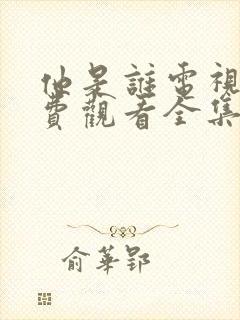 他是誰電視
費觀看全集
俞華郢